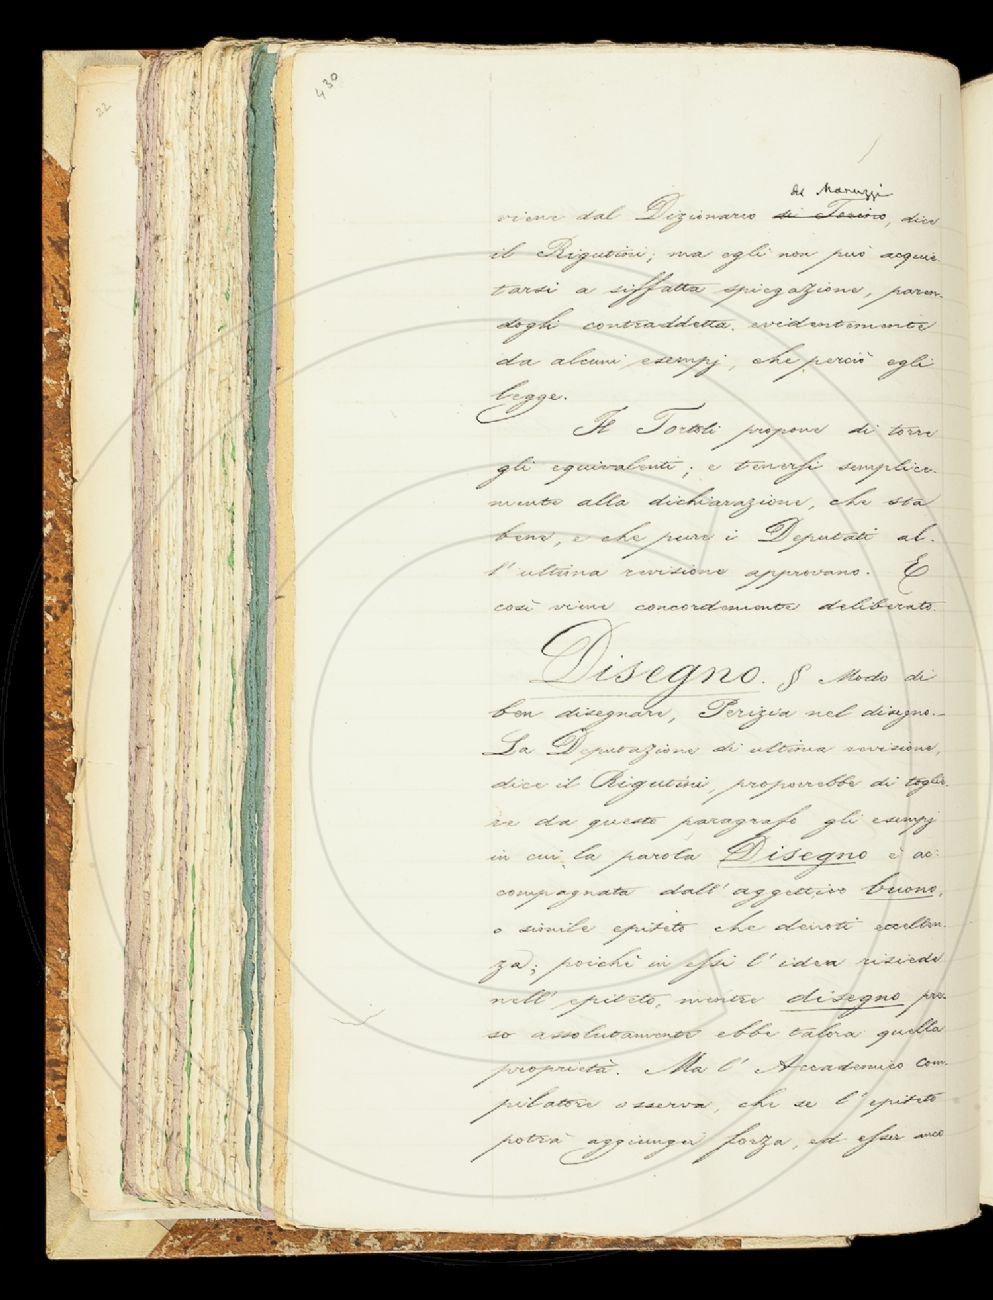 22
430
de Maruzzi
viene dal Dizionario di Torino, dice
il Rigutini; ma egli non può acquie-
tarsi a siffatta spiegazione, paren-
dogli contraddetta evidentemente
da alcuni esempj, che perciò egli
legge.
Il Tortoli propone di torre
gli equivalenti; e tenersi semplice-
mente alla dichiarazione, che sta
bene, e che pure i Deputati al-
l'ultima revisione approvano. E
così viene concordemente deliberato.
Disegno. § Modo di
ben disegnare, Perizia nel disegno.—
La Deputazione di ultima revisione,
dice il Rigutini, proporrebbe di toglie-
re da questo paragrafo gli esempj
in cui la parola Disegno è ac-
compagnata dall'aggettivo buono,
o simile epiteto che denoti eccellen-
za; poichè in essi l'idea risiede
nell'epiteto, mentre disegno pre-
so assolutamente ebbe talora quella
proprietà. Ma l'Accademico Com-
pilatore osserva, che se l'epiteto
potrà aggiunger forza, ed esser anco